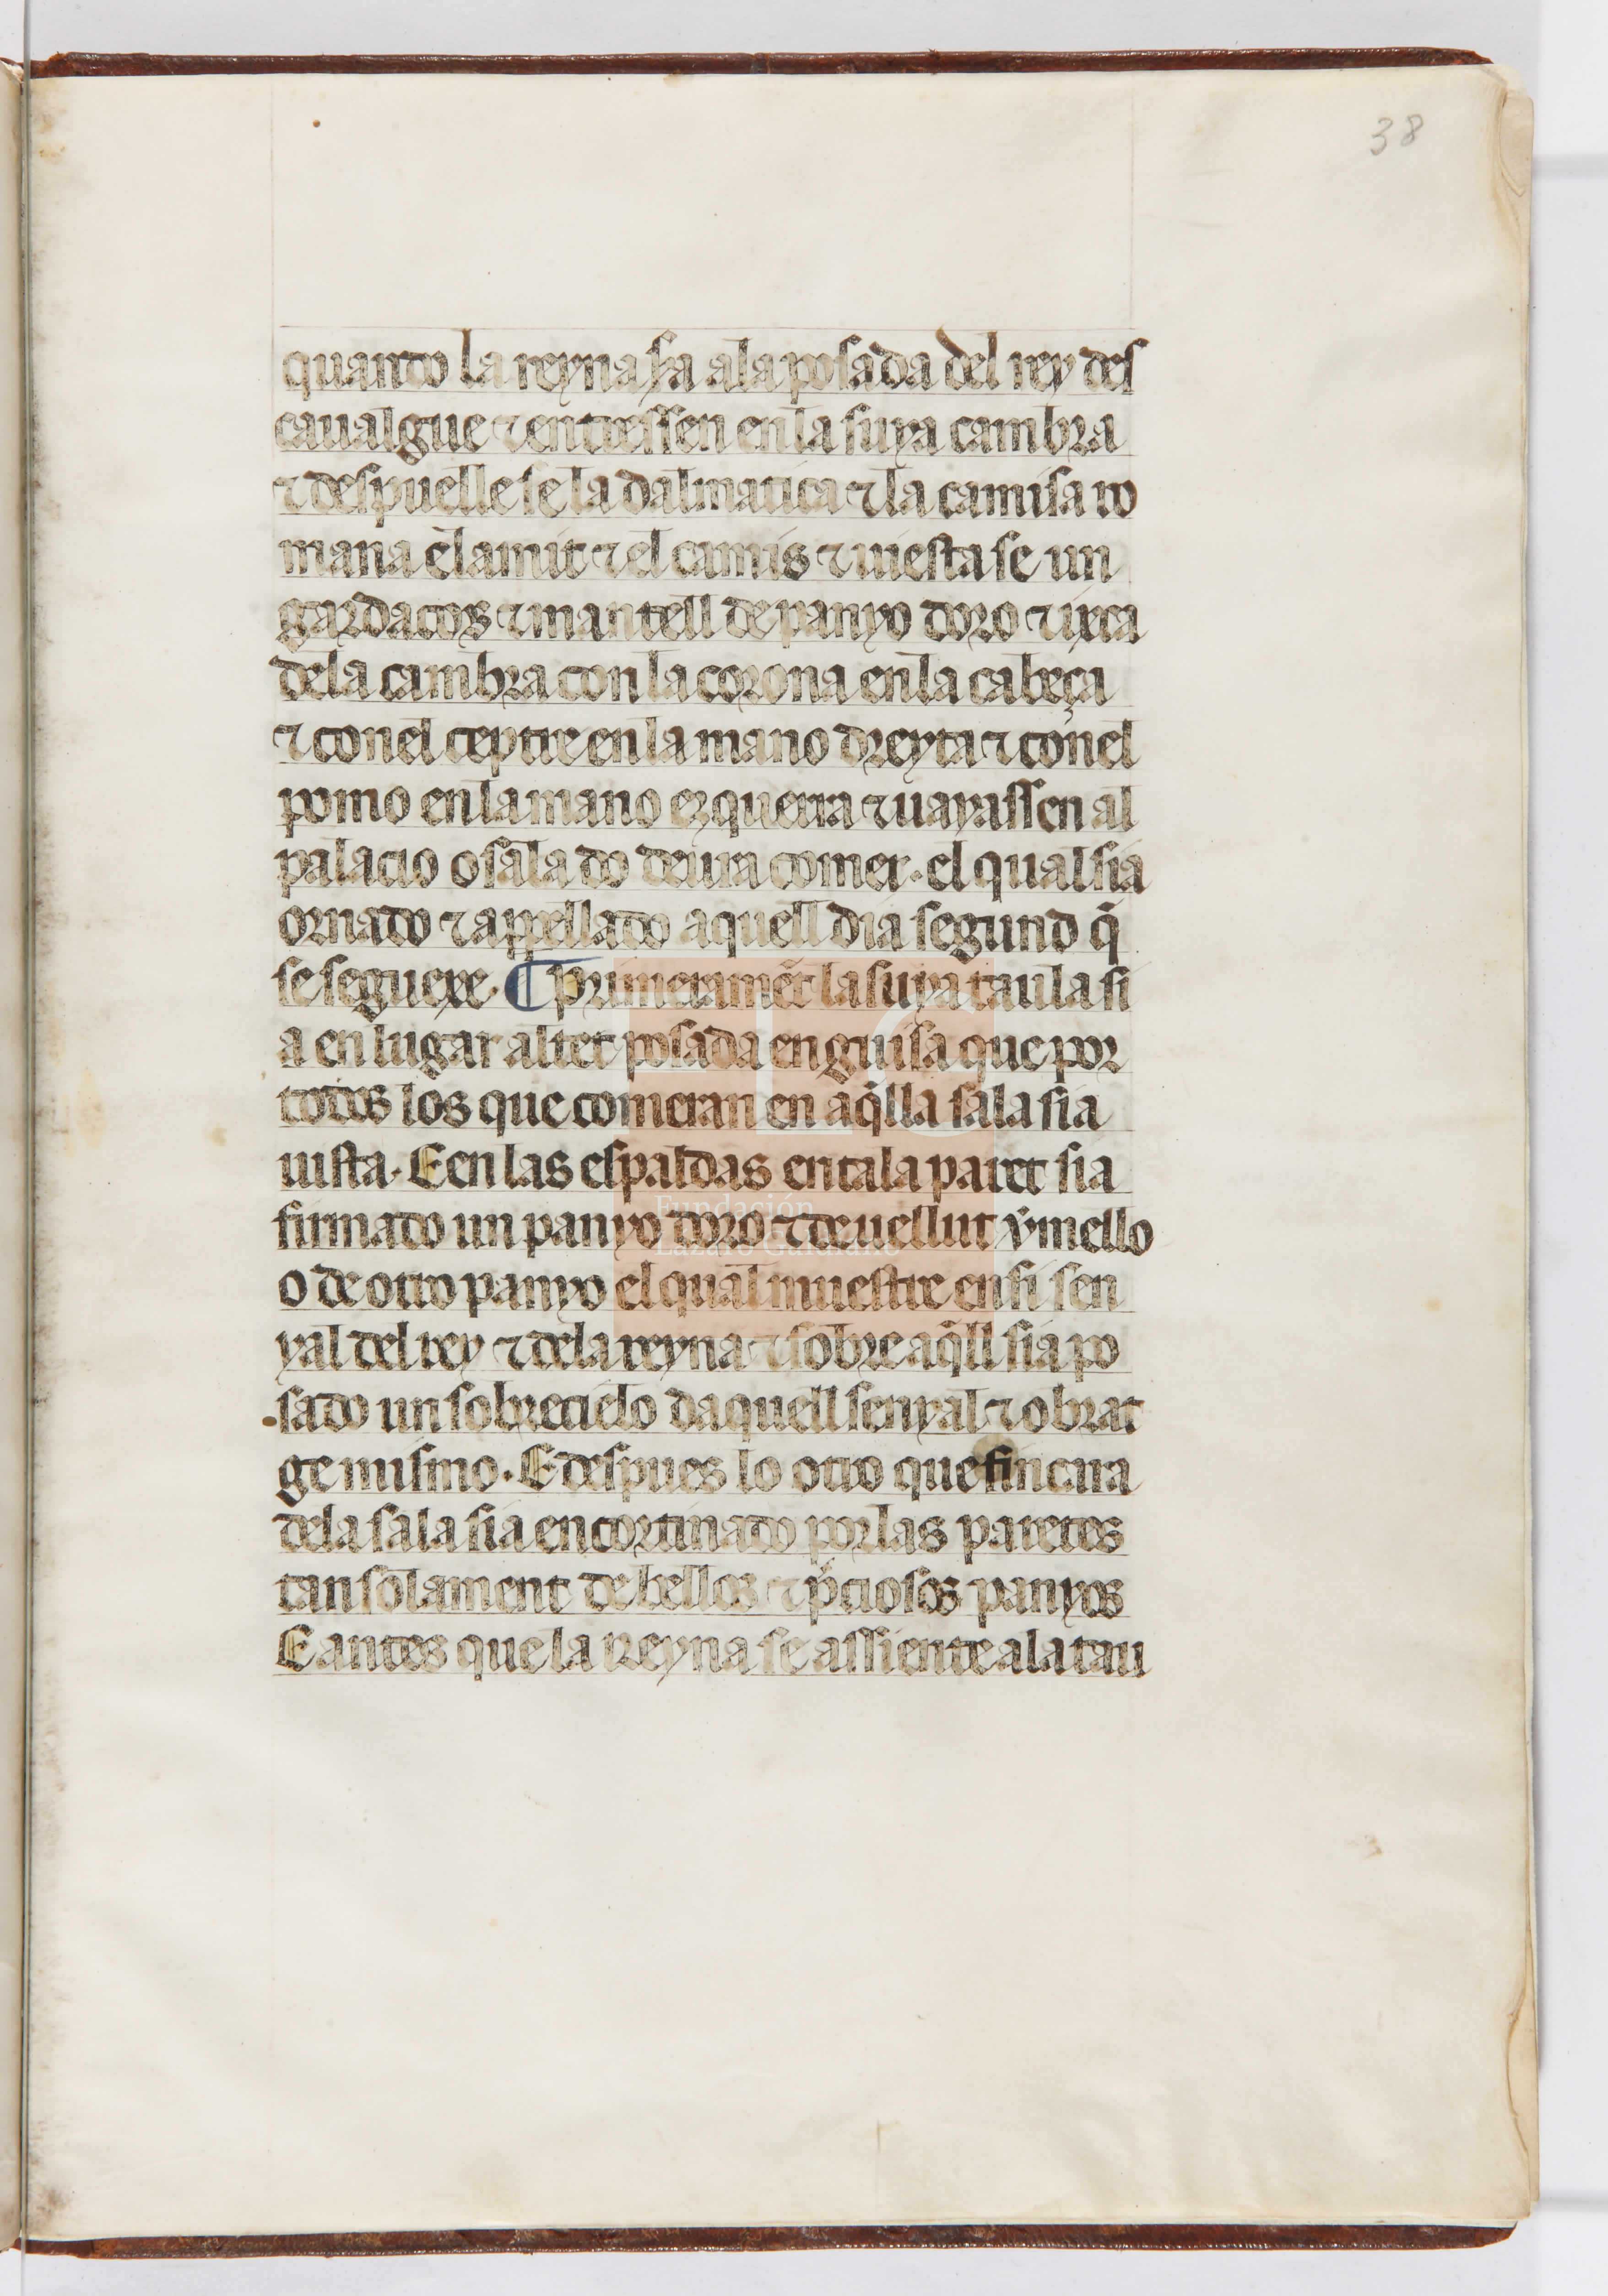 38
quando la reyna sia a la posada del rey des
caualgue ⁊ entressen en la suya cambra
⁊ despuelle se la dalmatica ⁊ la camisa ro
mana el amit ⁊ el camis ⁊ uiesta se un
gardacos ⁊ mantell de panyo doro ⁊ ixca
de la cambra con la corona en la cabeça
⁊ con el ceptre en la mano dreyta ⁊ con el
pomo en la mano ezquerra ⁊ uayassen al
palacio o sala do deura comer. el qual sia
ornado ⁊ appellado aquell dia segund q̄
se seguexe. ¶ primeramēt la suya taula si
a en lugar altet posada en guisa que por
todos los que comeran en aq̄lla sala sia
uista. E en las espaldas en tala paret sia
firmado un panyo doro ⁊ de uellut v̄mello
o de otro panyo el qual muestre en si sen
yal del rey ⁊ de la reyna ⁊ sobre aq̄ll sia po
sado un sobrecielo daquell senyal ⁊ obrat
ge mismo. E despues lo otro que fincara
de la sala sia encortinado por las paretes
tan solament de bellos ⁊ p̄ciosos panyos
E antes que la reyna se assiente a la tau
Fundación
Lázaro Galdiano